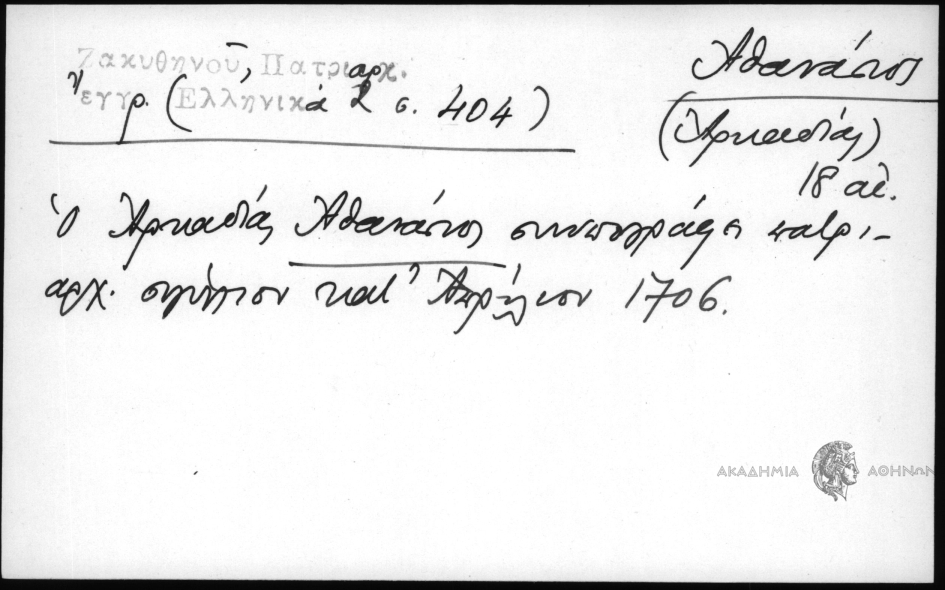 Ζακυθηνοῦ, Πατριαρχ.
ἔγγρ. (Ἑλληνικά 2 σ. 404)
Ἀθανάσιος
(Ἀρκαδίας)
18 αἰ.
Ὁ Ἀρκαδίας Ἀθανάσιος συνυπογράφει πατρι-
αρχ. σιγίλλιον κατ' Ἀπρίλιον 1706.
ΑΚΑΔΗΜΙΑ ΑΘΗΝΩΝ